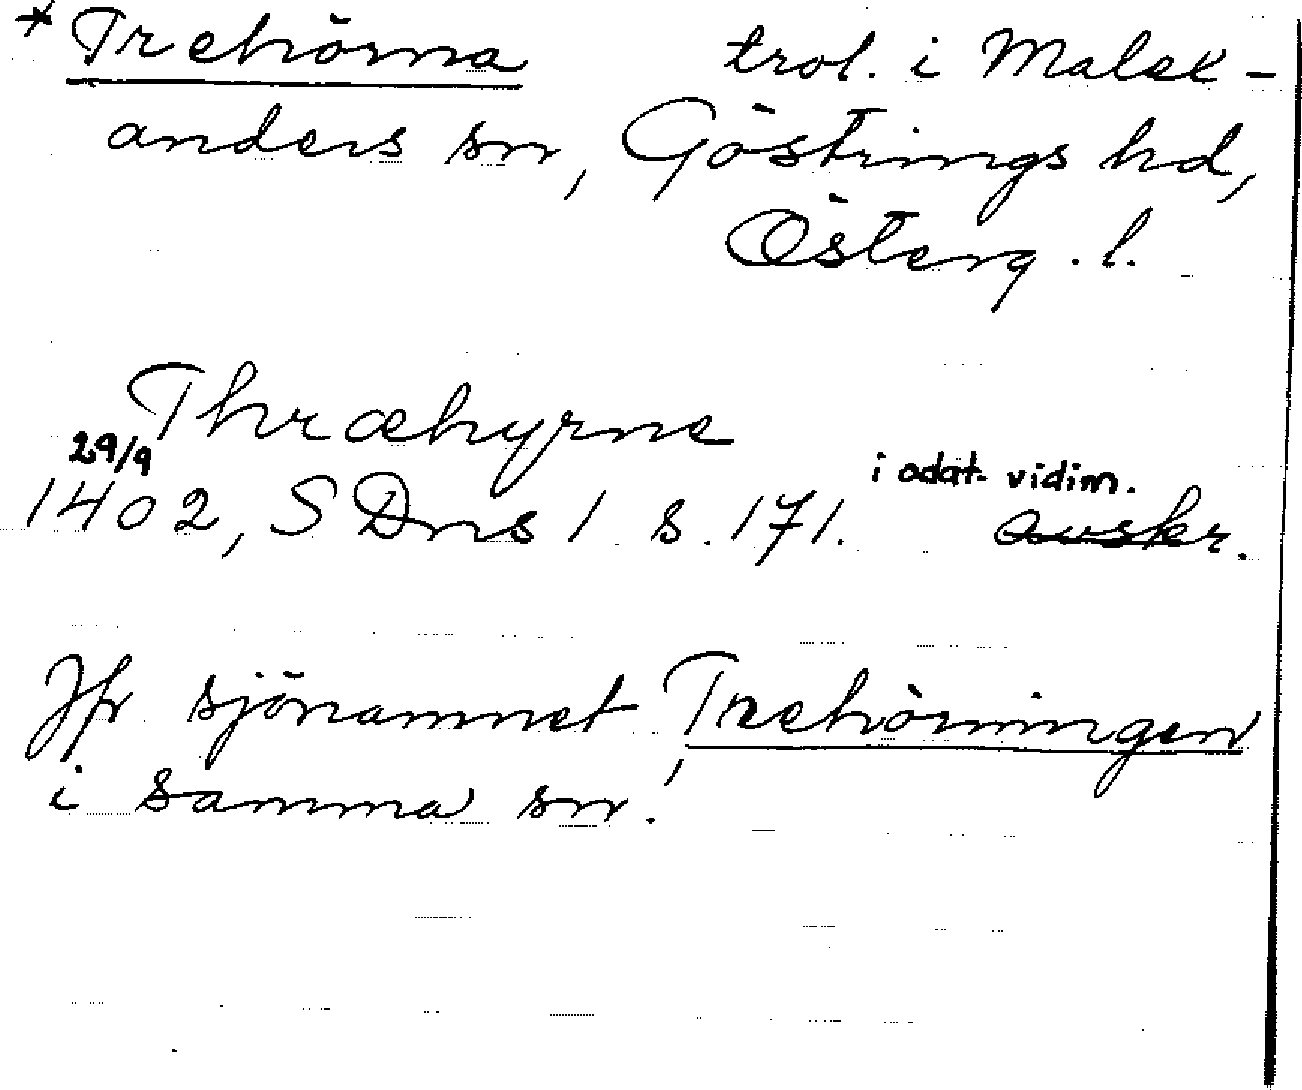 * Trehörna trol. i Malex-
anders sn, Göstrings hd,
Österg. l.
Thræhyrne
29/9 i odat. vidim.
1402, SDns 1 s. 171. avskr.
Jfr sjönamnet Trehörningen
i samma sn.